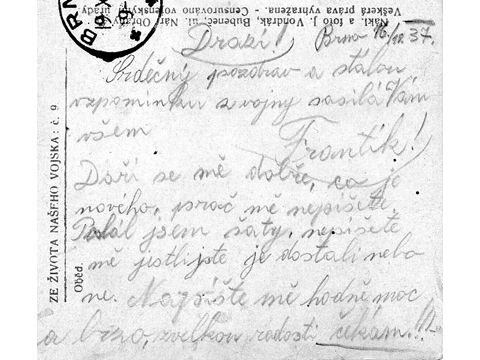 Nakl. a foto J. Vondrák, Bubeneč, ul. Nár. Obrany
Veškerá práva vyhražena. - Censurováno vojenskými úřady
BRN
Drazí! Brno 16/IX. 37.
Srdečný pozdrav a stálou
vzpomínku z vojny zasílá Vám
všem Frantík!
Daří se mě dobře, co je
nového, proč mě nepíšete
Poslal jsem šaty, nepíšete
mě jestli jste je dostali nebo
ne. Napište mě hodně moc
a brzo, zvelkou radostí čekám!!!
ZE ŽIVOTA NAŠEHO VOJSKA: č. 9
Oběd.